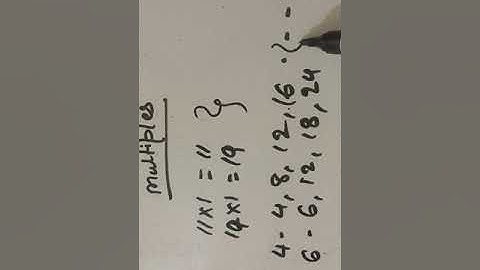 Multiples
11x1 = 11
19x1 = 19 }
4 - 4, 8, 12, 16 . } - -
6 - 6, 12, 18, 24